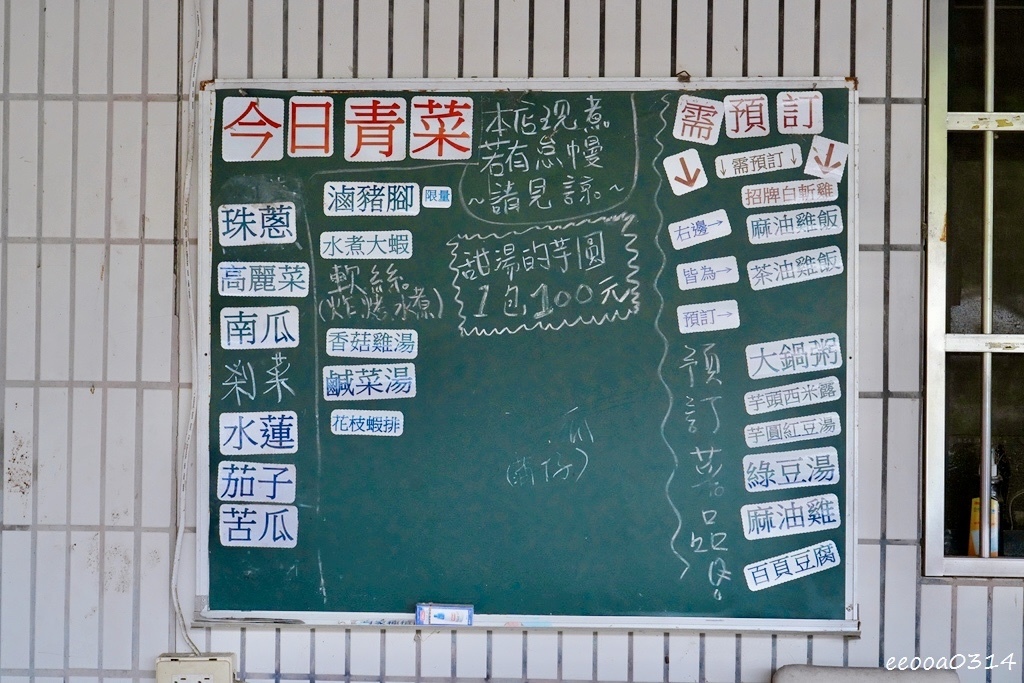 今日青菜
珠蔥
高麗菜
南瓜
剎菜
水蓮
茄子
苦瓜
滷豬腳 限量
水煮大蝦
軟絲
(炸.烤.水煮)
香菇雞湯
鹹菜湯
花枝蝦排
本店現煮
若有怠慢
~請見諒~
甜湯的芋圓
1包100元
瓜
需預訂
↓ ↓需預訂↓ ↓
招牌白斬雞
右邊→ 麻油雞飯
皆為→ 茶油雞飯
預訂→
大鍋粥
芋頭西米露
芋圓紅豆湯
綠豆湯
麻油雞
百頁豆腐
預訂
品
eeooa0314